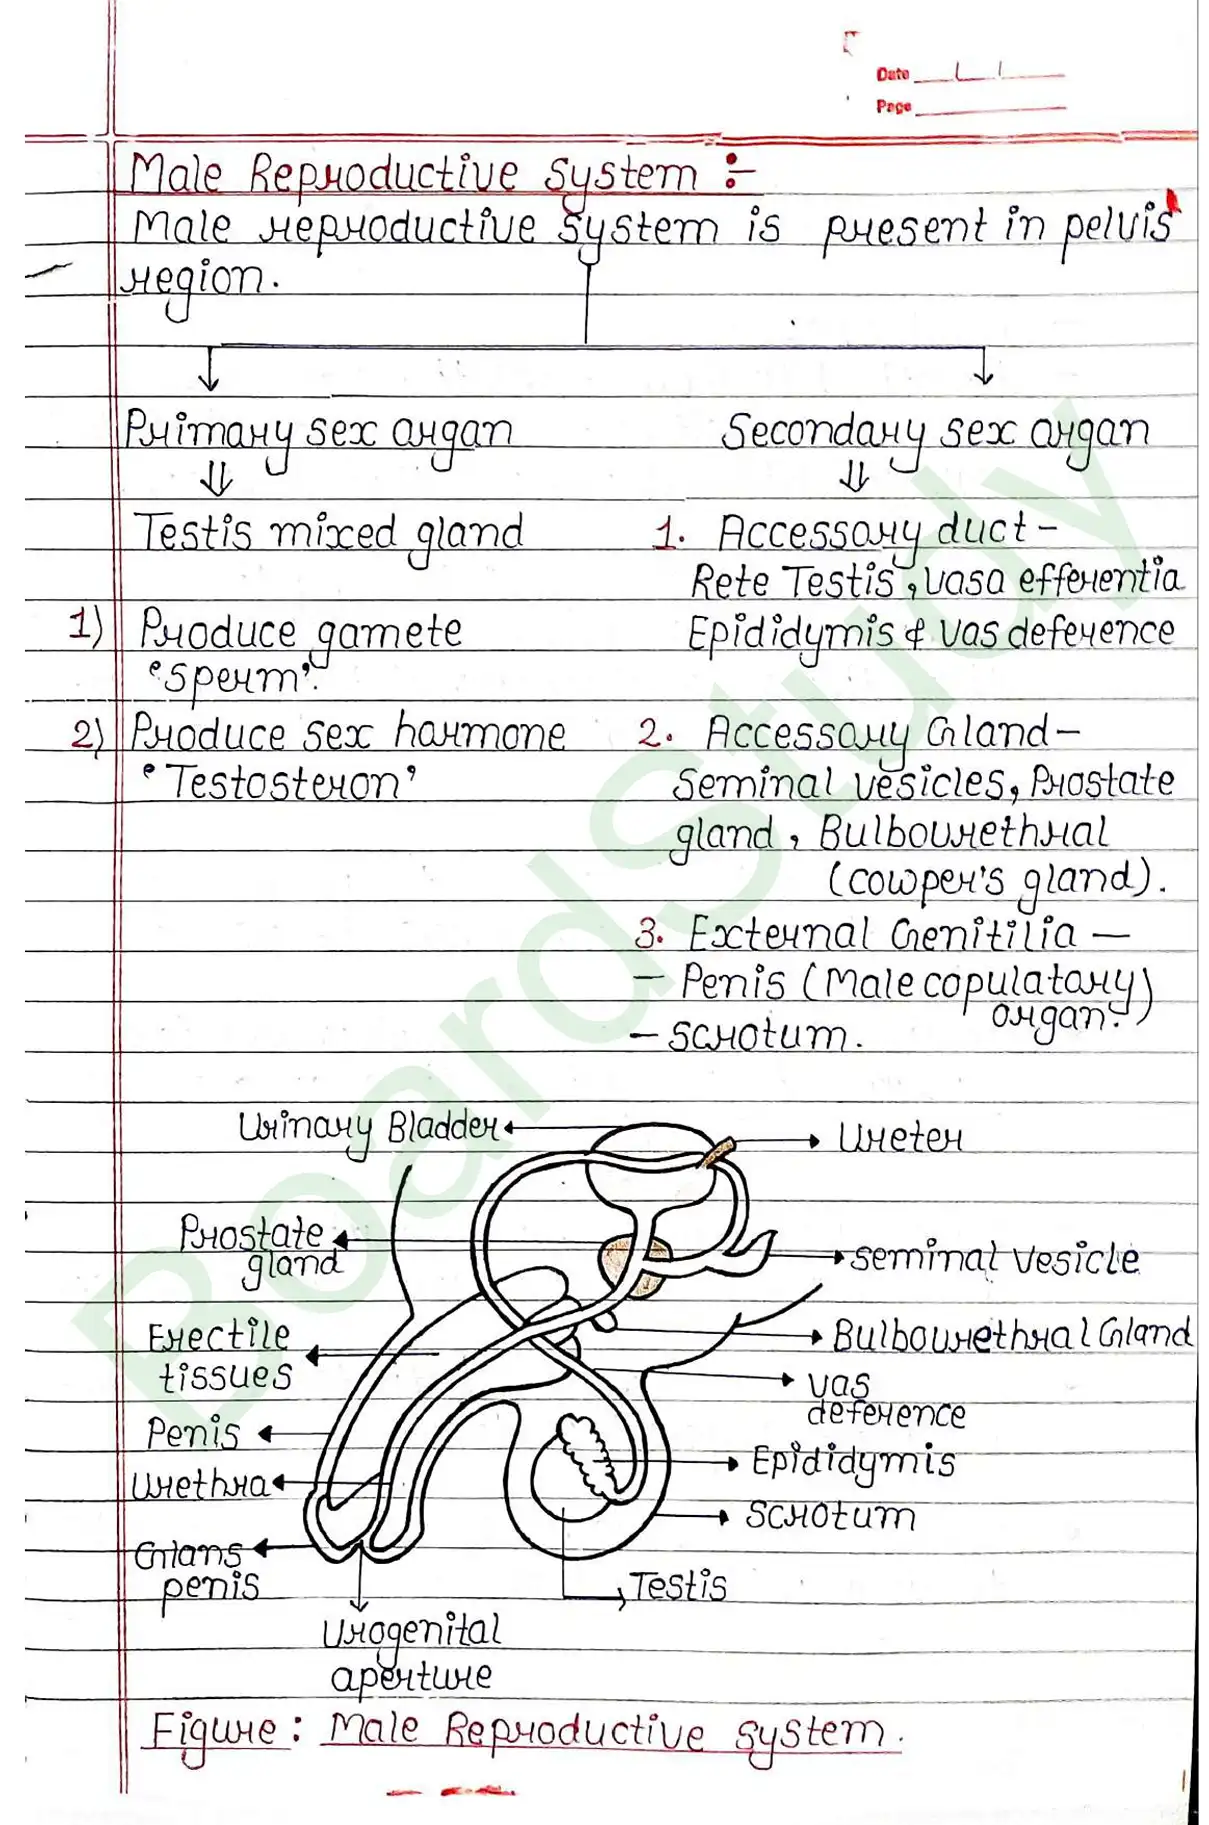 Date
Page
Male Reproductive System :-
Male reproductive system is present in pelvis
region.
Primary sex organ
Secondary sex organ
Testis mixed gland
1) Produce gamete
'sperm'.
2) Produce sex harmone
'Testosteron'
1. Accessory duct -
Rete Testis, vasa efferentia
Epididymis & vas deference
2. Accessory Gland -
Seminal vesicles, Prostate
gland, Bulbourethral
(cowper's gland).
3. External Genitilia -
- Penis (Male copulatory
organ.)
- Scrotum.
Urinary Bladder
Ureter
Prostate
gland
Seminal vesicle
Erectile
tissues
Bulbourethral Gland
vas
deference
Penis
Epididymis
Urethra
Scrotum
Glans
penis
Testis
Urogenital
aperture
Figure : Male Reproductive system.
BoardStudy